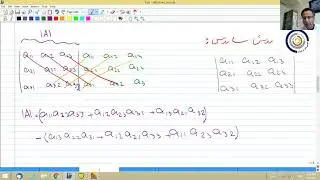 |A|
روش ساروس:
a₁₁ a₁₂ a₁₃ a₁₁ a₁₂ a₁₃
a₂₁ a₂₂ a₂₃ a₂₁ a₂₂ a₂₃
a₃₁ a₃₂ a₃₃ a₃₁ a₃₂ a₃₃
a₁₁ a₁₂ a₁₃
a₂₁ a₂₂ a₂₃
a₃₁ a₃₂ a₃₃
|A| = (a₁₁a₂₂a₃₃ + a₁₂a₂₃a₃₁ + a₁₃a₂₁a₃₂)
-(a₁₃a₂₂a₃₁ + a₁₂a₂₁a₃₃ + a₁₁a₂₃a₃₂)